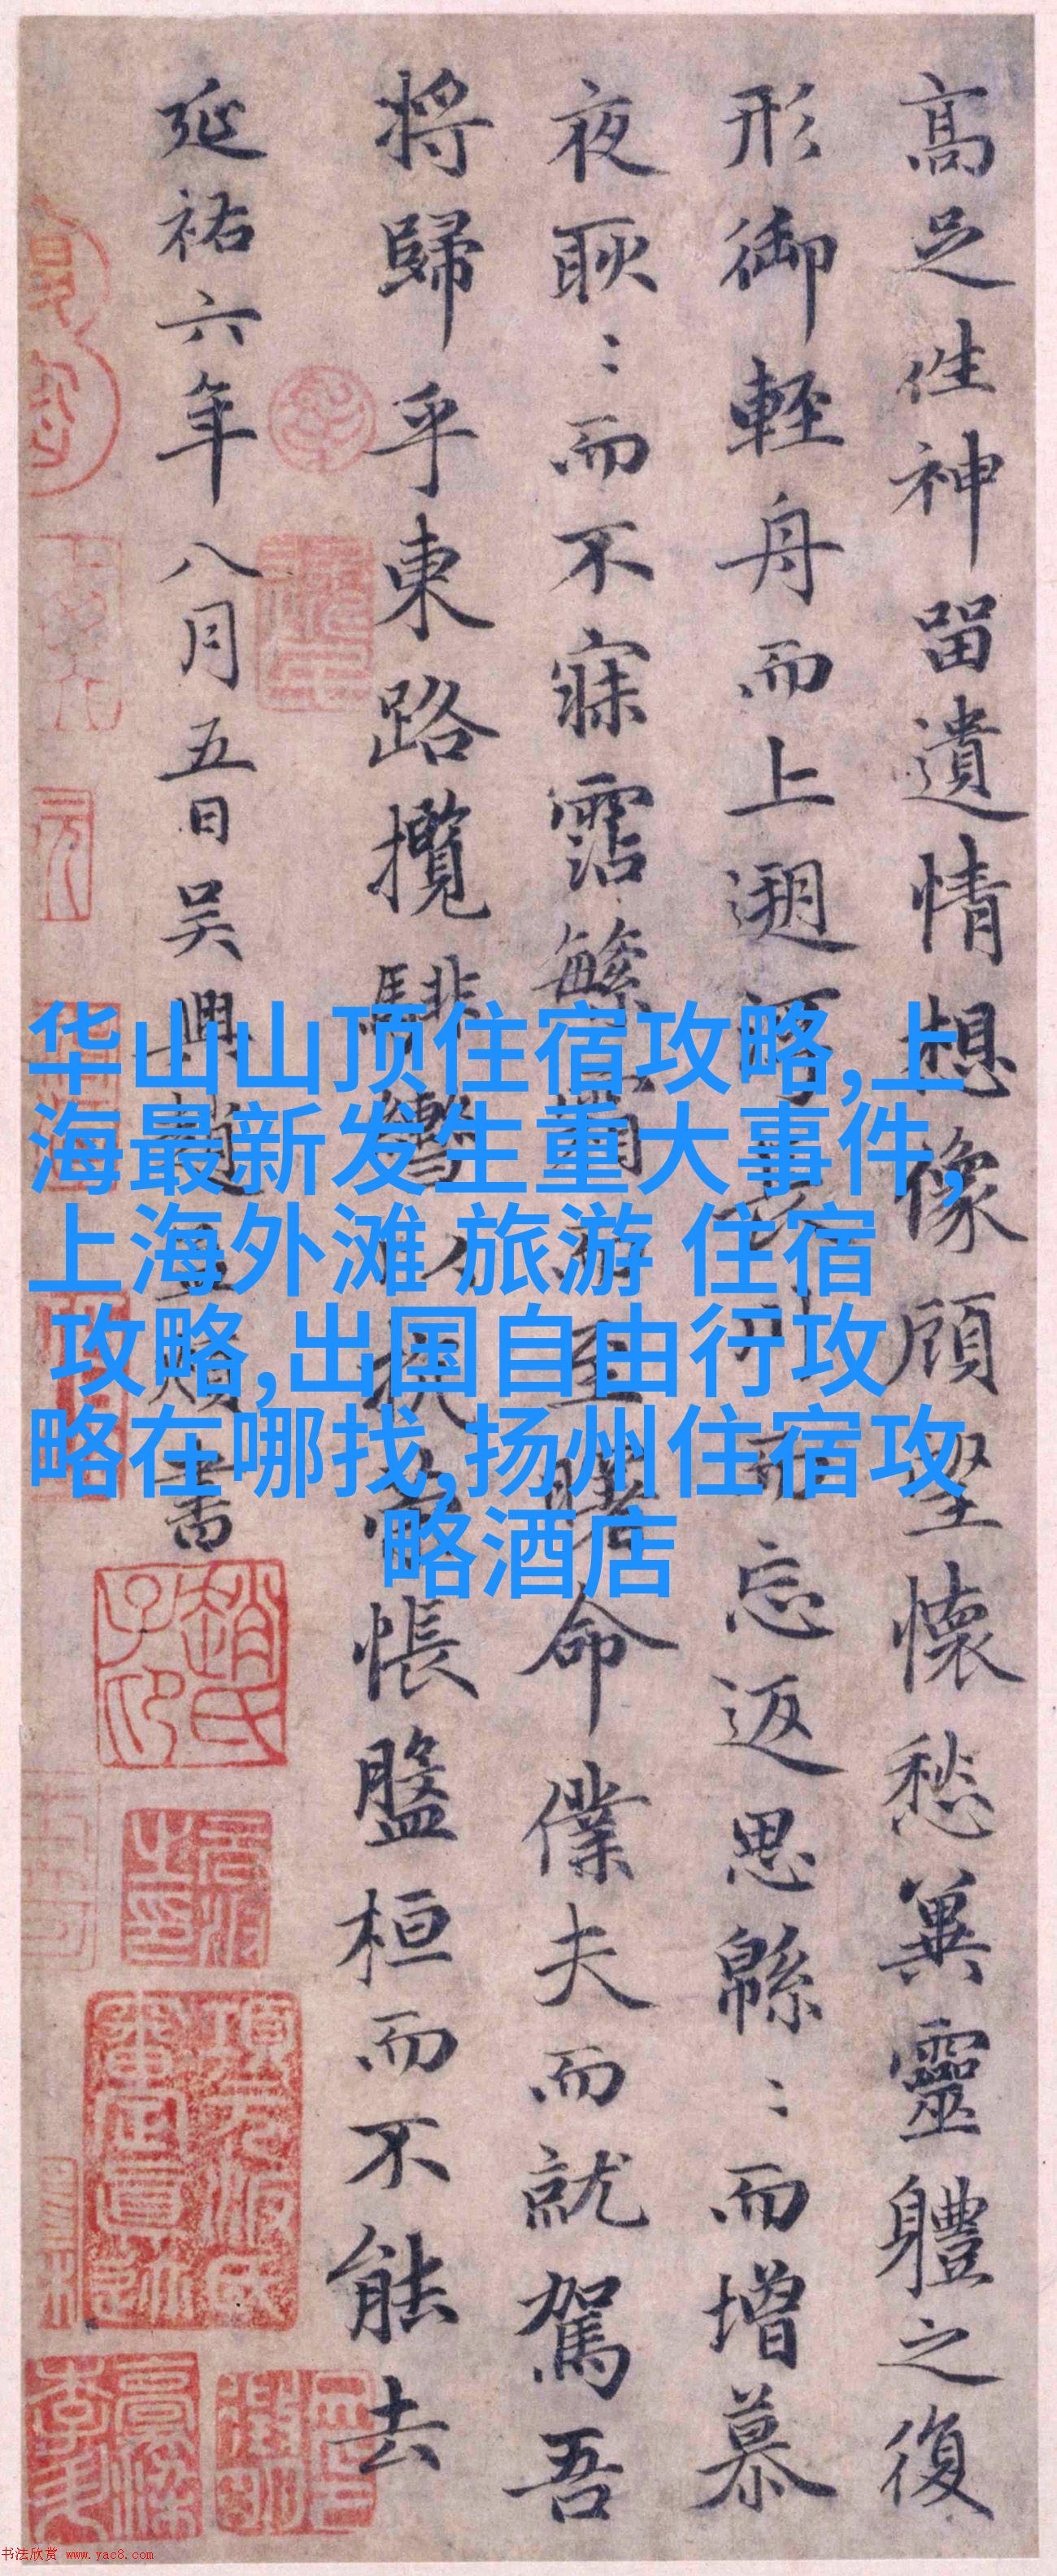 高足徃神留遺情想像顧望懷愁兾靈軆之復
形御輕舟而上遡
忘返思緜〻而增慕
夜耿〻而不寐霑繁霜而至曙命僕夫而就駕吾
將歸乎東路攬騑轡以抗
悵盤桓而不能去
延祐六年八月五日吴興趙孟頫書
華山山顶住宿攻略,上
海最新发生重大事件,
上海外滩 旅游 住宿
攻略,出国自由行攻
略在哪找,扬州住宿攻
略酒店
趙氏子印
书法欣赏 www.yac8.com